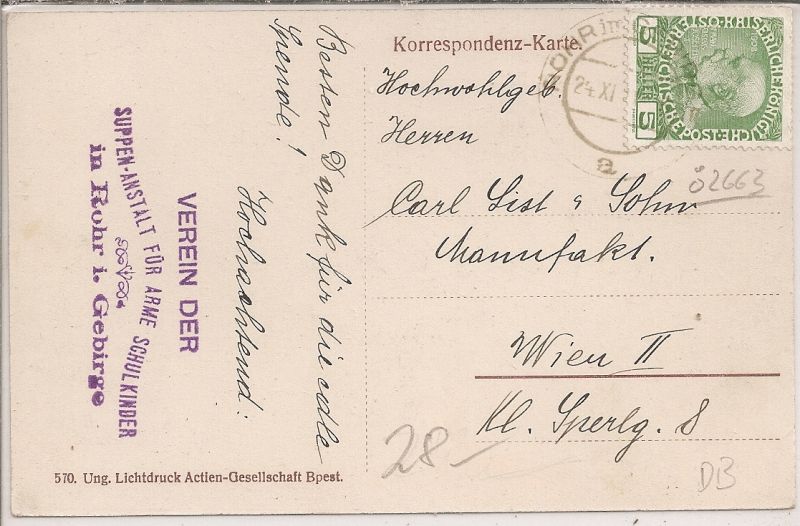 Korrespondenz-Karte.
ROHR im
24 XI
a
KAISERLICHE KÖNIGLICHE ÖSTERREICHISCHE POST
5
HELLER
5
Hochwohlgeb.
Herren
Carl List & Sohn
Manufakt.
Wien II
Kl. Sperlg. 8
Besten Dank für die edle
Spende!
Hochachtend:
VEREIN DER
SUPPEN-ANSTALT FÜR ARME SCHULKINDER
in Rohr i. Gebirge
ö2663
28-
DB
570. Ung. Lichtdruck Actien-Gesellschaft Bpest.